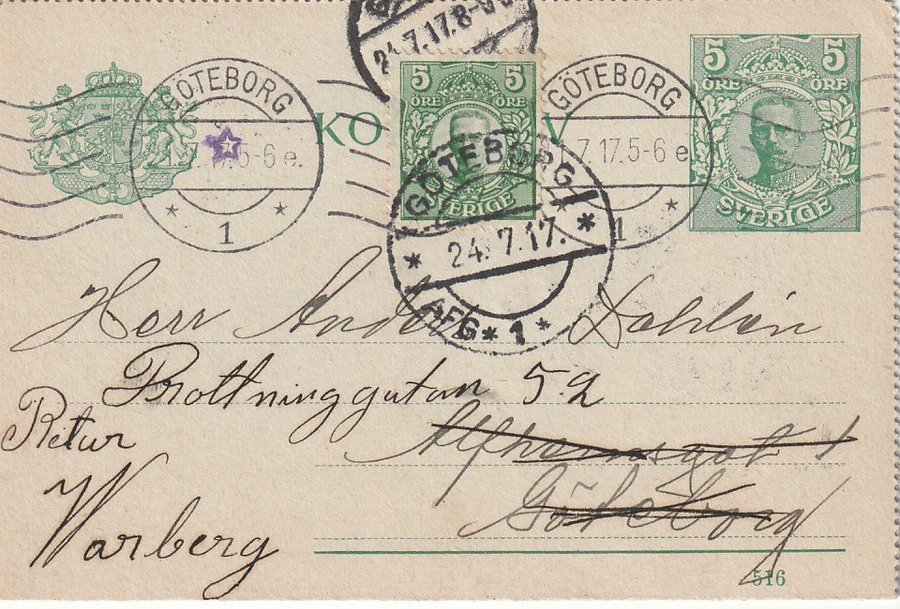 24.7.17.8-
5 5
ÖRE ÖRE
SVERIGE
5 5
ÖRE ÖRE
SVERIGE
KO V
GÖTEBORG
17.5-6 e.
1
GÖTEBORG
7.17.5-6 e
1
GÖTEBORG
24. 7.17.
AFG * 1 *
Herr Anders Dahlin
Drottninggatan 52
Retur
Alfhemsgat 1
Göteborg
Warberg
516